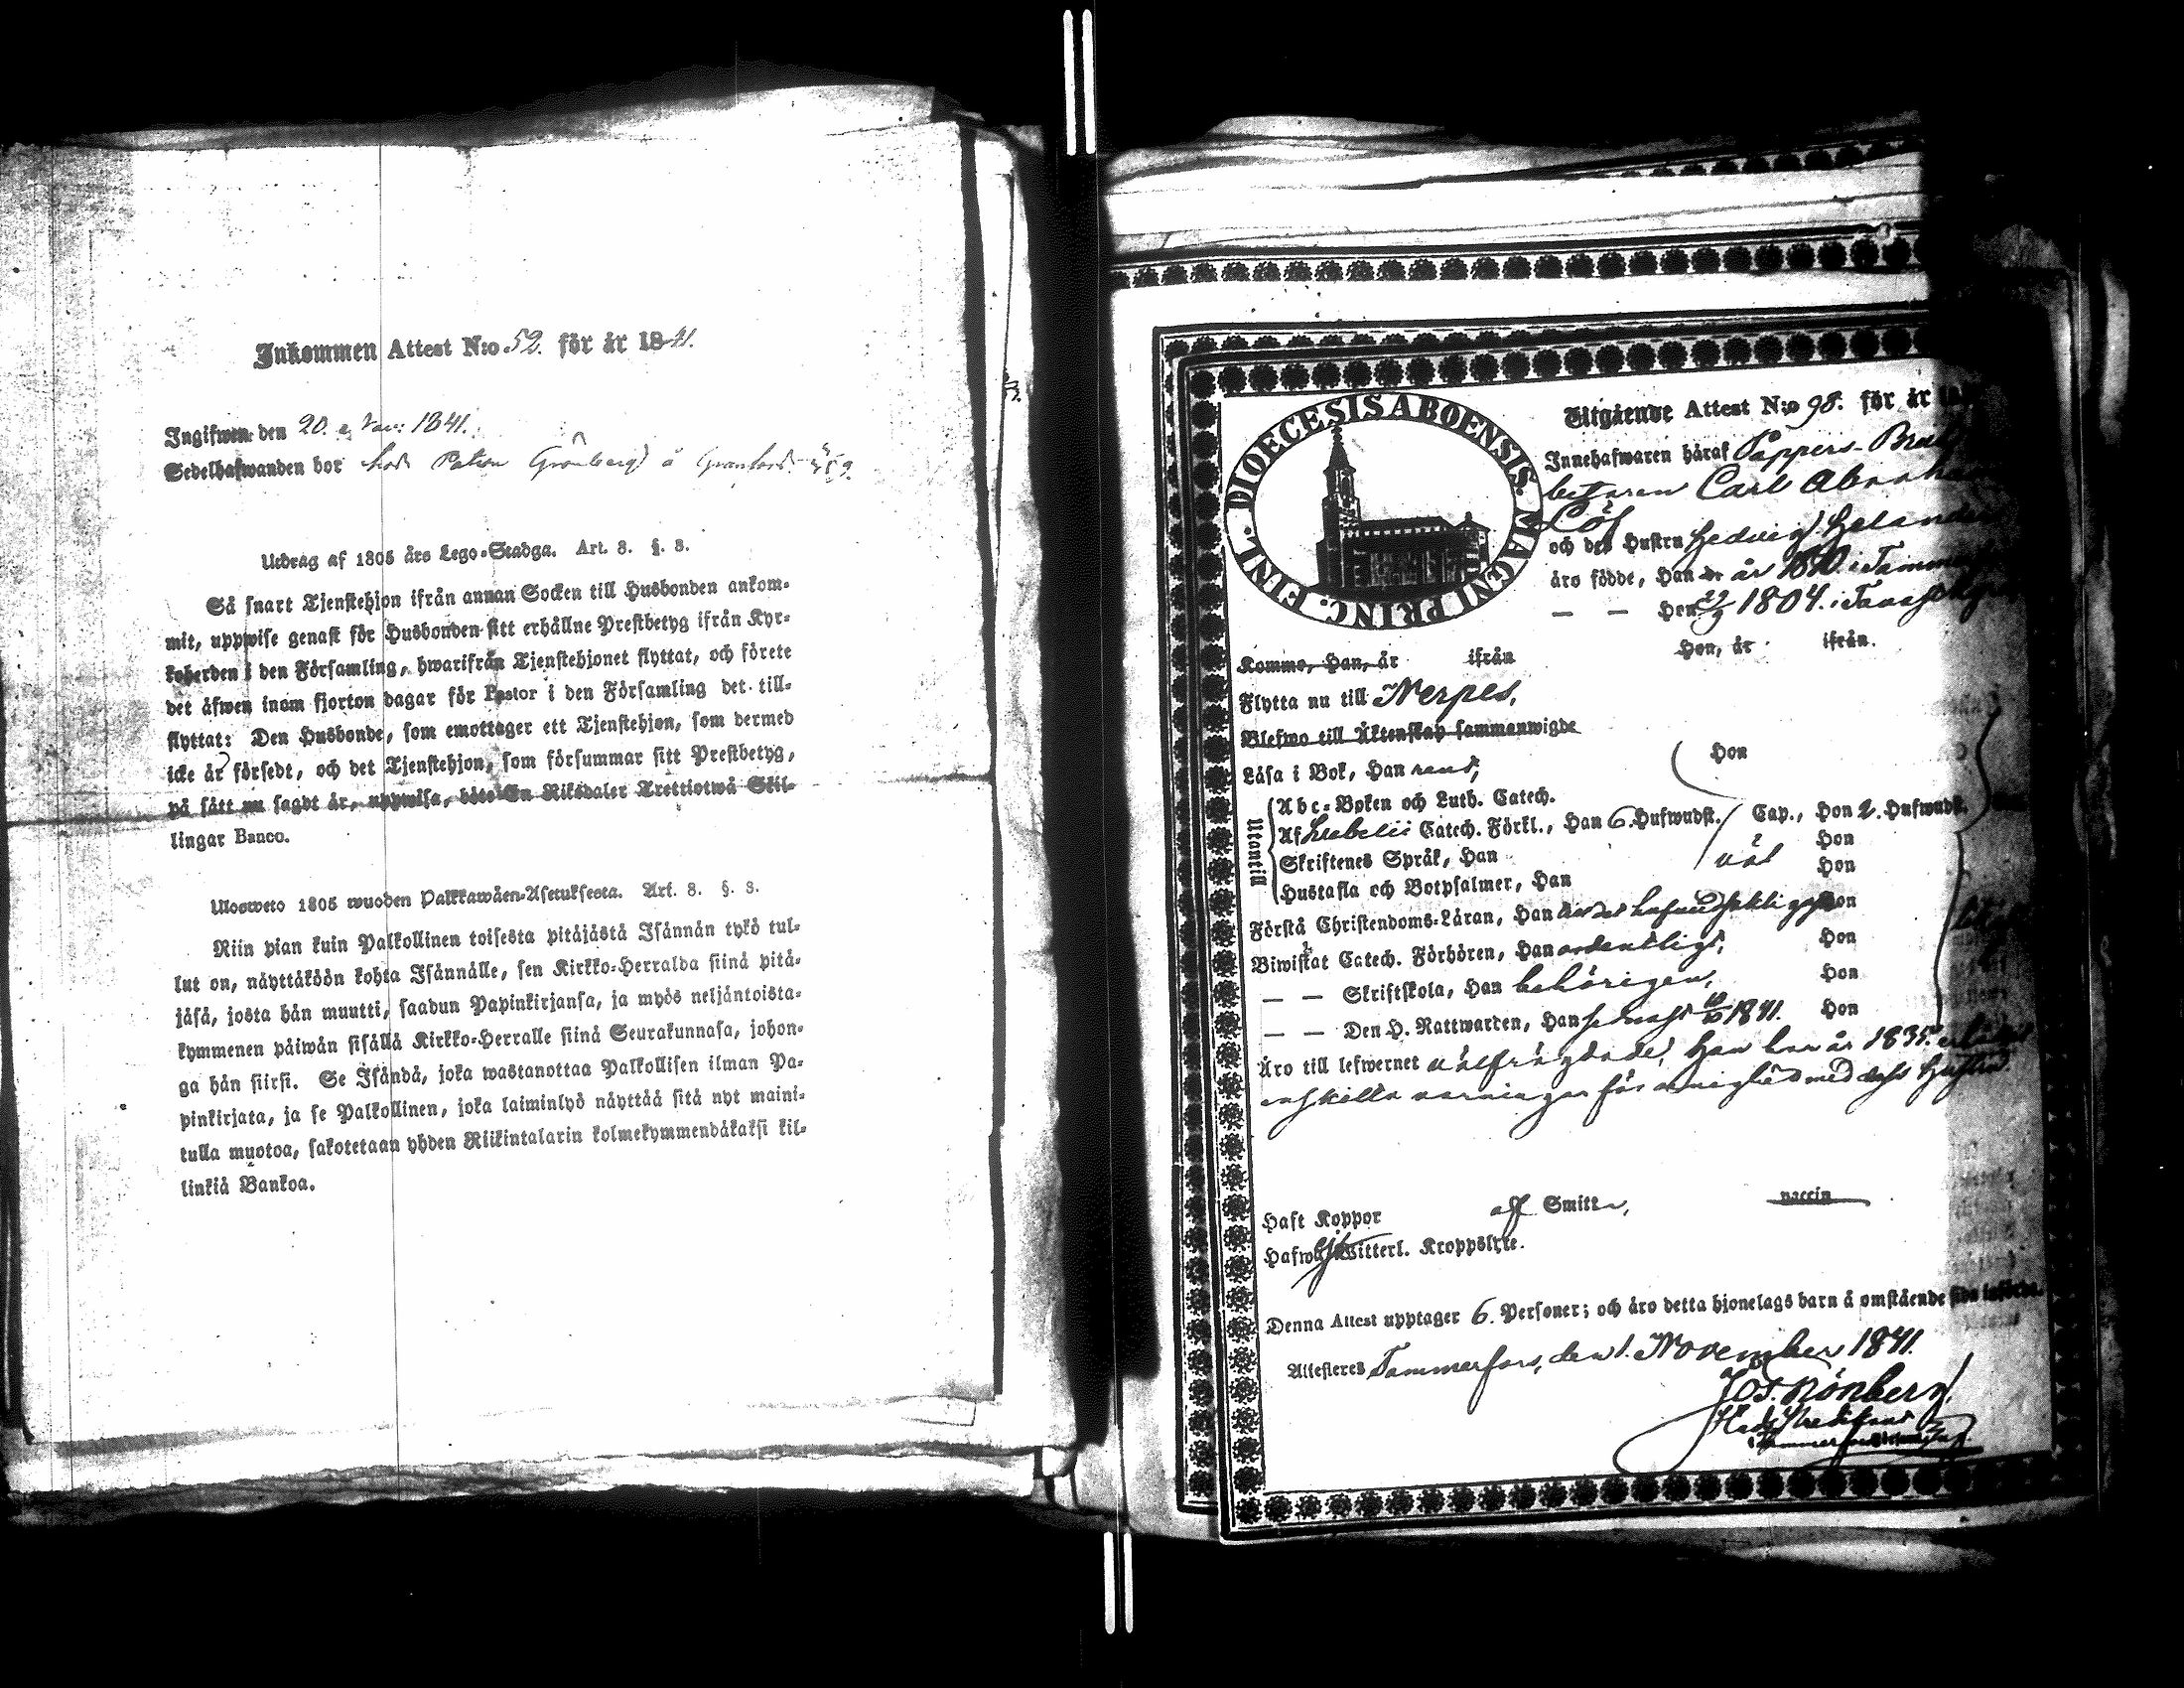 Inkommen Attest N:o 52. för år 1841.
Ingifwen den 20. Nov: 1841.
Sedelhafwanden bor hos Patron Grönberg å
Utdrag af 1805 års Lego-Stadga. Art. 3. §. 3.
Så snart Tjenstehjon ifrån annan Socken till Husbonden ankom-
mit, uppwise genast för Husbonden sitt erhållne Prestbetyg ifrån Kyr-
koherden i den Församling, hwarifrån Tjenstehjonet flyttat, och förete
det äfwen inom fjorton dagar för Pastor i den Församling det till-
flyttat: Den Husbonde, som emottager ett Tjenstehjon, som dermed
icke är försedt, och det Tjenstehjon, som försummar sitt Prestbetyg,
på sätt nu sagdt är, uppwisa, böte En Riksdaler Trettiotwå Skil-
lingar Banco.
Ulosweto 1805 wuoden Palkkawäen-Asetuksesta. Art. 3. §. 3.
Niin pian kuin Palkollinen toisesta pitäjästä Isännän tykö tul-
lut on, näyttäköön kohta Isännälle, sen Kirkko-Herralda siinä pitä-
jäsä, josta hän muutti, saadun Papinkirjansa, ja myös neljäntoista-
kymmenen päiwän sisällä Kirkko-Herralle siinä Seurakunnasa, johon-
ga hän siirsi. Se Isändä, joka wastanottaa Palkollisen ilman Pa-
pinkirjata, ja se Palkollinen, joka laiminlyö näyttää sitä nyt maini-
tulla muotoa, sakotetaan yhden Riikintalarin kolmekymmendäkaksi kil-
linkiä Bankoa.
DIOECESIS ABOENSIS. MAGNI PRINC. FINL.
Utgående Attest N:o 98. för år
Innehafwaren häraf Pappers-Bruks
betaren Carl Abraham
Löf
och dess Hustru Hedvig Helander
äro födde, Han år 1810. i Tammer
— — Hon 22/9 1804. i
Komne, Han, år ifrån Hon, år ifrån.
Flytta nu till Nerpes,
Blefwo till Äktenskap sammanwigde
Läsa i Bok, Han rent, Hon
Utantill
Abc-Boken och Luth. Catech.
Af Svebelii Catech. Förkl., Han 6. Hufwudst. Cap., Hon 2. Hufwudst.
Skriftenes Språk, Han Hon
Hustafla och Botpsalmer, Han väl Hon
Första Christendoms-Läran, Han Hon
Biwistat Catech. Förhören, Han ordentligt, Hon
— — Skriftskola, Han behörigen, Hon
— — Den H. Nattwarden, Han senast 1841. Hon
Äro till lefwernet välfrägdade, han har år 1835.
enskilda varningar för oenighet med dess hustru.
Haft Koppor af Smitta, vaccin
Hafwa ej Witterl. Kroppslyte.
Denna Attest upptager 6. Personer; och äro detta hjonelags barn å omstående sida införde.
Attesteres Tammerfors, den 1. November 1841.